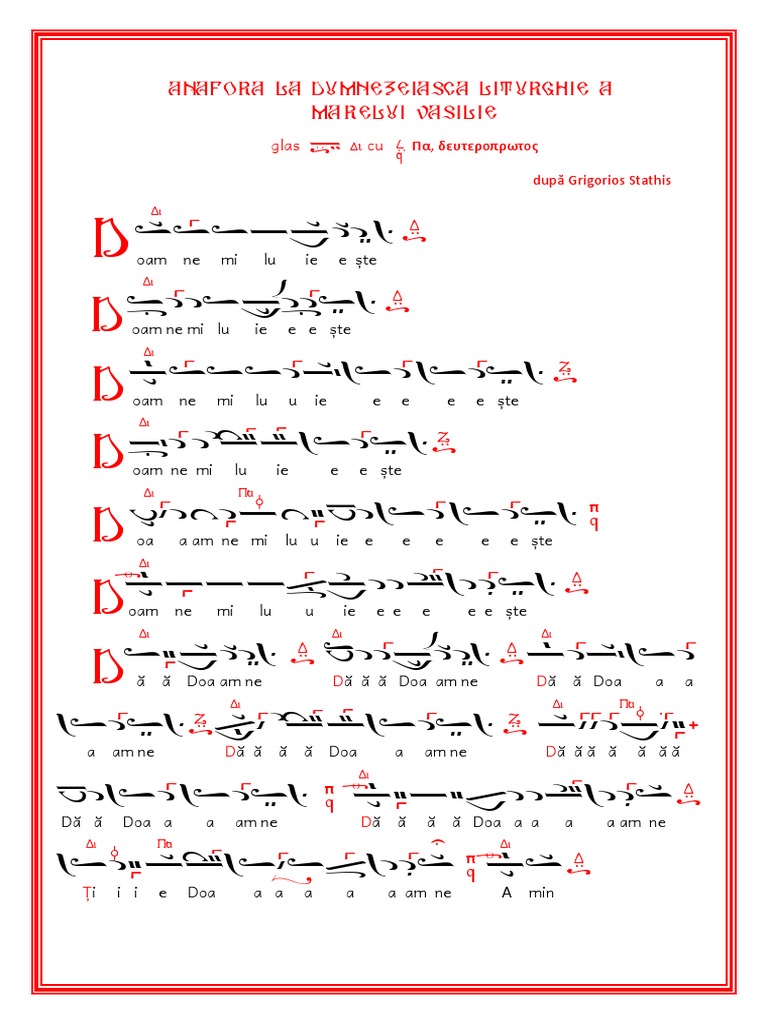 ANAFORA LA DUMNEZEIASCA LITURGHIE A
MARELUI VASILIE
glas Δι cu Πα, δευτεροπρωτος
după Grigorios Stathis
Δι Δ
Doam ne mi lu ie e ște
Δι Δ
Doam ne mi lu ie e e ște
Δι Z
Doam ne mi lu u ie e e e e ște
Δι Z
Doam ne mi lu ie e e ște
Δι Πα π q
Doa a am ne mi lu u ie e e e e e ște
Δι Δ
Doam ne mi lu u ie e e e e e ște
Δι Δ Δι Δ Δι
Dă ă Doa am ne Dă ă ă Doa am ne Dă ă Doa a a
Z Δι Z Δι Πα
a am ne Dă ă ă ă Doa a am ne Dă ă ă ă ă ă ă
π q Δι Δ
Dă ă Doa a a am ne Dă ă ă ă Doa a a a a am ne
Δι Πα π q Δι Δ
Ți i i e Doa a a a a a am ne A min